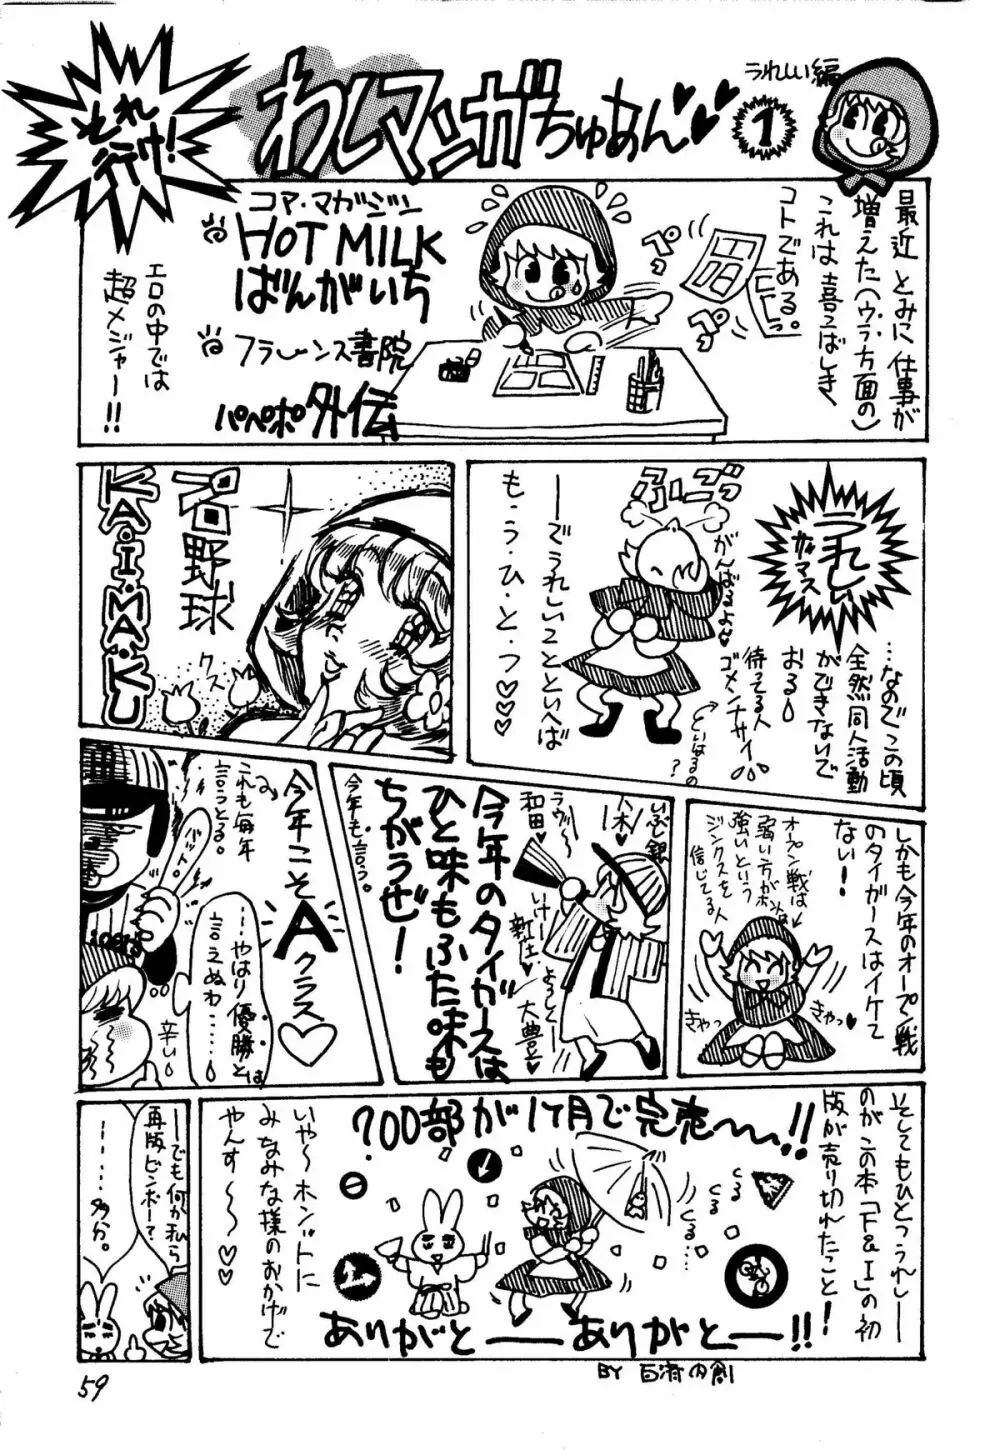 それ
行け!
わしマンガちゅあん♥♥
1
うれしい編
最近とみに仕事が
増えた(ウラ方面の)
これは喜こばしき
コトである。
ペラ
ペラ
コア・マガジン
HOT MILK
ばんがいち
フランス書院
パペポ外伝
エロの中では
超メジャー!!
うれしい
ガマス
…なのでこの頃
全然同人活動
ができないで
おる
がんばるよ♥
待ってる人
ゴメンナサイ
といはるの?
――でうれしいことといへば
も・う・ひ・と・つ♡♡♡
プロ野球
KA・I・MA・KU
クス
しかも今年のオープン戦
のタイガースはイケて
ない!
オープン戦は
弱い方がホンバン
強いという
ジンクスを
信じてる人
きゃっ
きゃっ♥
いぶし銀
八木
ラヴ〜
和田♥
いけー
新庄
よろしくー
大豊
今年のタイガースは
ひと味もふた味も
ちがうぜ!
今年も言う。
今年こそ
Aクラス♡
これも毎年
言うとる。
…やはり優勝とは
言えぬわ……
辛い
そしてもひとつうれしー
のがこの本「F&I」の初
版が売り切れたこと!
700部が1ヶ月で完売〜〜!!
くる
くる
くる…
ありがと――ありがと―!!
いや〜ホントに
みなみな様のおかげで
やんす〜〜♡♡
――でも何か私ら
再版ビンボー?
……多分。
BY
59